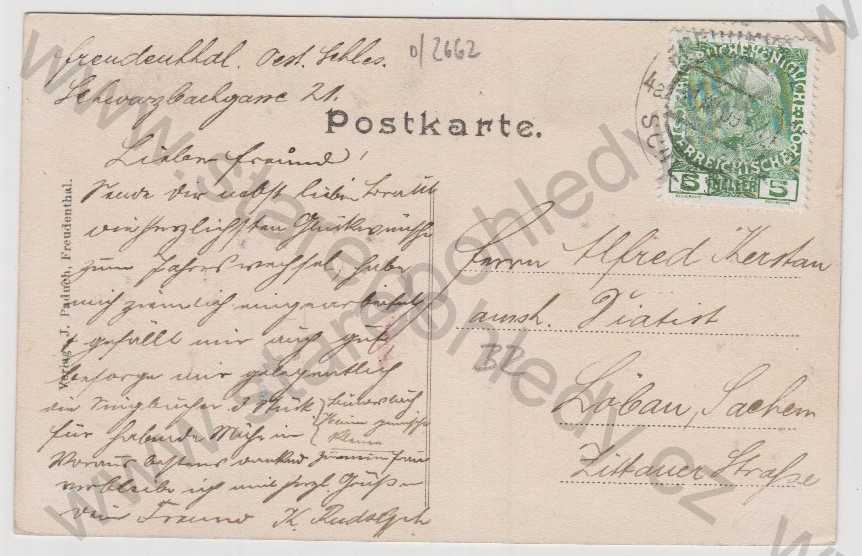 Freudenthal. Oest. Schles.
Schwarzbachgasse 21.
D/2662
Postkarte.
Lieber Freund!
Sende dir nebst lieber Braut
die herzlichsten Glückwünsche
zum Jahreswechsel, habe
mich ziemlich eingearbeitet
gefällt mir auch gut
besorge mir gelegentlich
die
für habende Mühe in
Voraus bestens dankend
verbleibe ich mit herzl. Grüßen
dein Freund K. Rudolph
Verlag v. J. Paduch, Freudenthal.
KAISERLICHE KÖNIGLICHE ÖSTERREICHISCHE POST
5 HELLER 5
Herrn Alfred Kerstan
Diätist
BR
Löbau, Sachsen
Zittauer Straße
www.starepohledy.cz